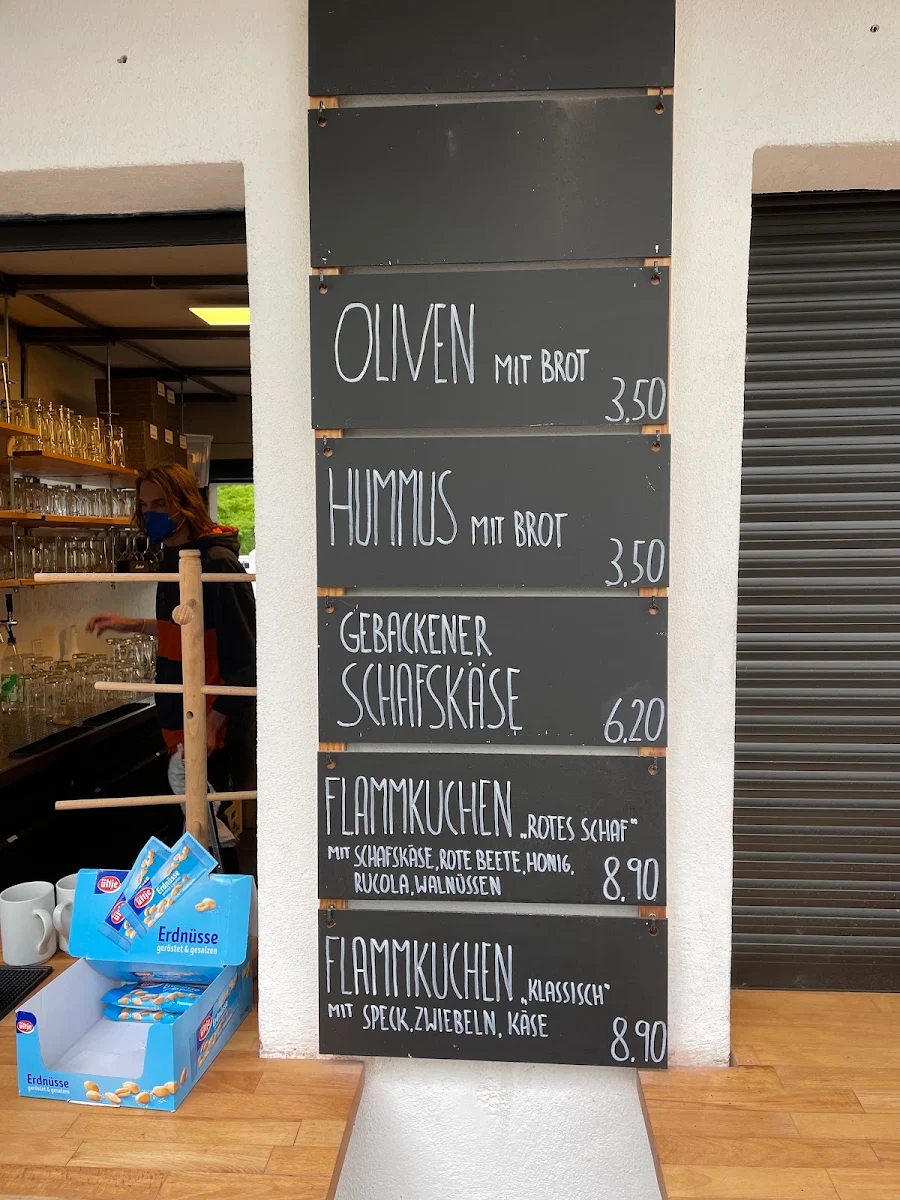 OLIVEN MIT BROT
3.50
HUMMUS MIT BROT
3.50
GEBACKENER
SCHAFSKÄSE
6.20
FLAMMKUCHEN „ROTES SCHAF"
MIT SCHAFSKÄSE, ROTE BEETE, HONIG,
RUCOLA, WALNÜSSEN
8.90
FLAMMKUCHEN „KLASSISCH"
MIT SPECK, ZWIEBELN, KÄSE
8.90
ültje
ültje
Erdnüsse
Erdnüsse
geröstet & gesalzen
ültje
ültje
Erdnüsse
geröstet & gesalzen